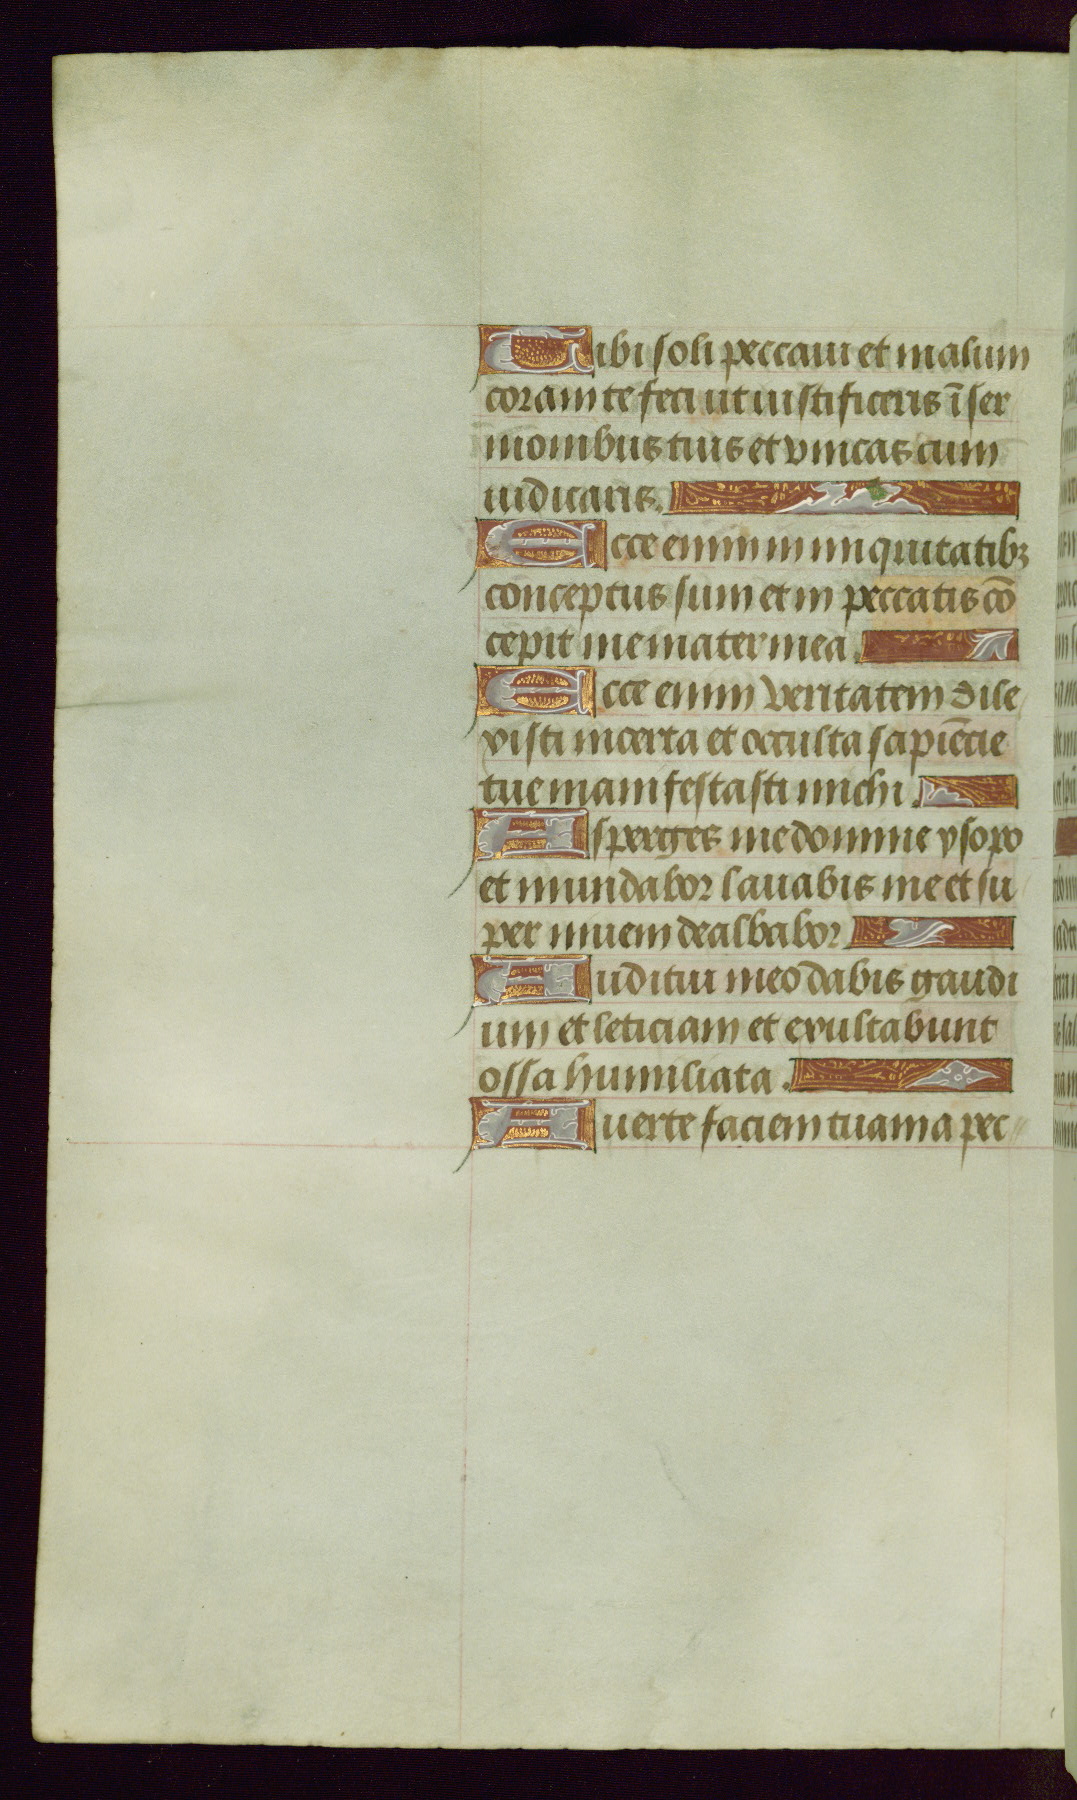 Tibi soli peccaui et malum
coram te feci ut iustificeris ī ser
monibus tuis et vincas cum
iudicaris.
Ecce enim in iniquitatibꝫ
conceptus sum et in peccatis cō
cepit me mater mea.
Ecce enim veritatem dile
xisti incerta et occulta sapiēcie
tue manifestasti michi.
Asperges me domine ysopo
et mundabor lauabis me et su
per niuem dealbabor
Auditui meo dabis gaudi
um et leticiam et exultabunt
ossa humiliata.
Auerte faciem tuam a pec